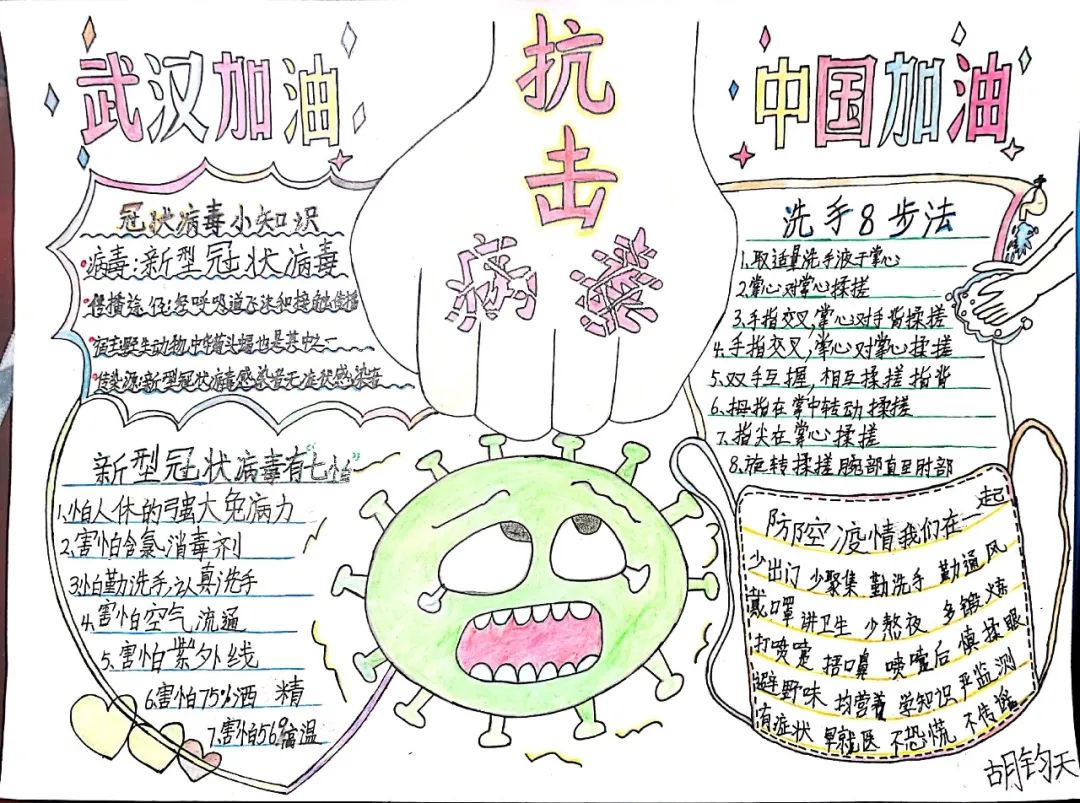 武汉加油
抗击
病毒
中国加油
冠状病毒小知识
病毒:新型冠状病毒
传播途径:经呼吸道飞沫和接触传播
宿主野生动物,中华菊头蝠也是其中之一
传染源:新型冠状病毒感染者无症状感染者
新型冠状病毒有“七怕”
1.怕人体的强大免病力
2.害怕含氯消毒剂
3怕勤洗手,认真洗手
4.害怕空气流通
5.害怕紫外线
6.害怕75%酒精
7.害怕56°高温
洗手8步法
1.取适量洗手液于掌心
2.掌心对掌心揉搓
3.手指交叉,掌心对手背揉搓
4.手指交叉,掌心对掌心揉搓
5.双手互握,相互揉搓指背
6.拇指在掌中转动揉搓
7.指尖在掌心揉搓
8.旋转揉搓腕部直至肘部
防控疫情我们在一起
少出门 少聚集 勤洗手 勤通风
戴口罩 讲卫生 少熬夜 多锻炼
打喷嚏 捂口鼻 喷嚏后 慎揉眼
避野味 均营养 学知识 严监测
有症状 早就医 不恐慌 不传谣
胡钧天